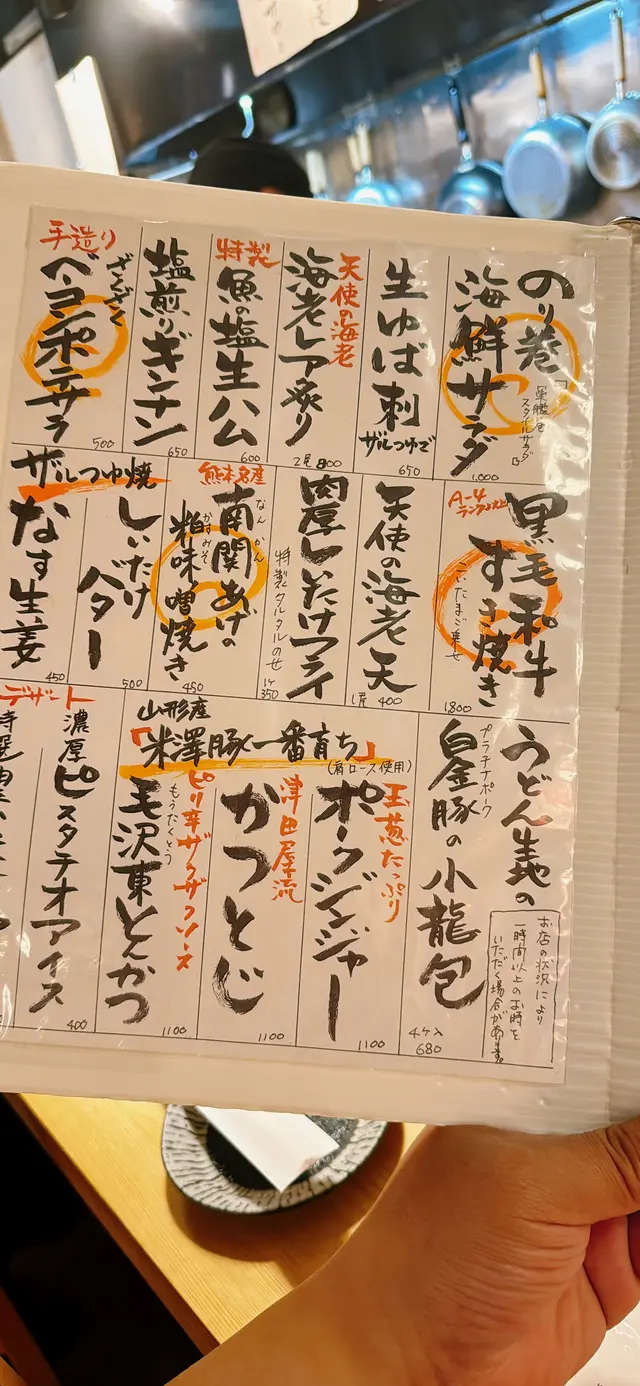 のり巻
海鮮サラダ
「軍艦巻
スタイルサラダ」
1,000
生ゆば刺
ザルつゆで
650
天使の海老
海老レア炙り
2尾 800
特製
魚の塩生ハム
600
塩煎りギンナン
650
手造り
ざくざく
ベーコンポテサラ
500
A-4
ランク以上
黒毛和牛
すき焼き
こいたまご乗せ
1800
天使の海老天
1尾 400
肉厚しいたけフライ
特製タルタルのせ
1ケ
350
熊本名産
なんかん
南関あげの
粕味噌焼き
450
ザルつゆ焼
しいたけ
バター
500
なす生姜
450
うどん生地の
プラチナポーク
白金豚の小龍包
4ケ入
680
お店の状況により
一時間以上のお時を
いただく場合があます。
山形産
「米澤豚一番育ち」
(肩ロース使用)
玉葱たっぷり
ポークジンジャー
1100
津田屋流
かつとじ
1100
ピリ辛ザクザクソース
もうたくとう
毛沢東とんかつ
1100
デザート
濃厚ピスタチオアイス
400